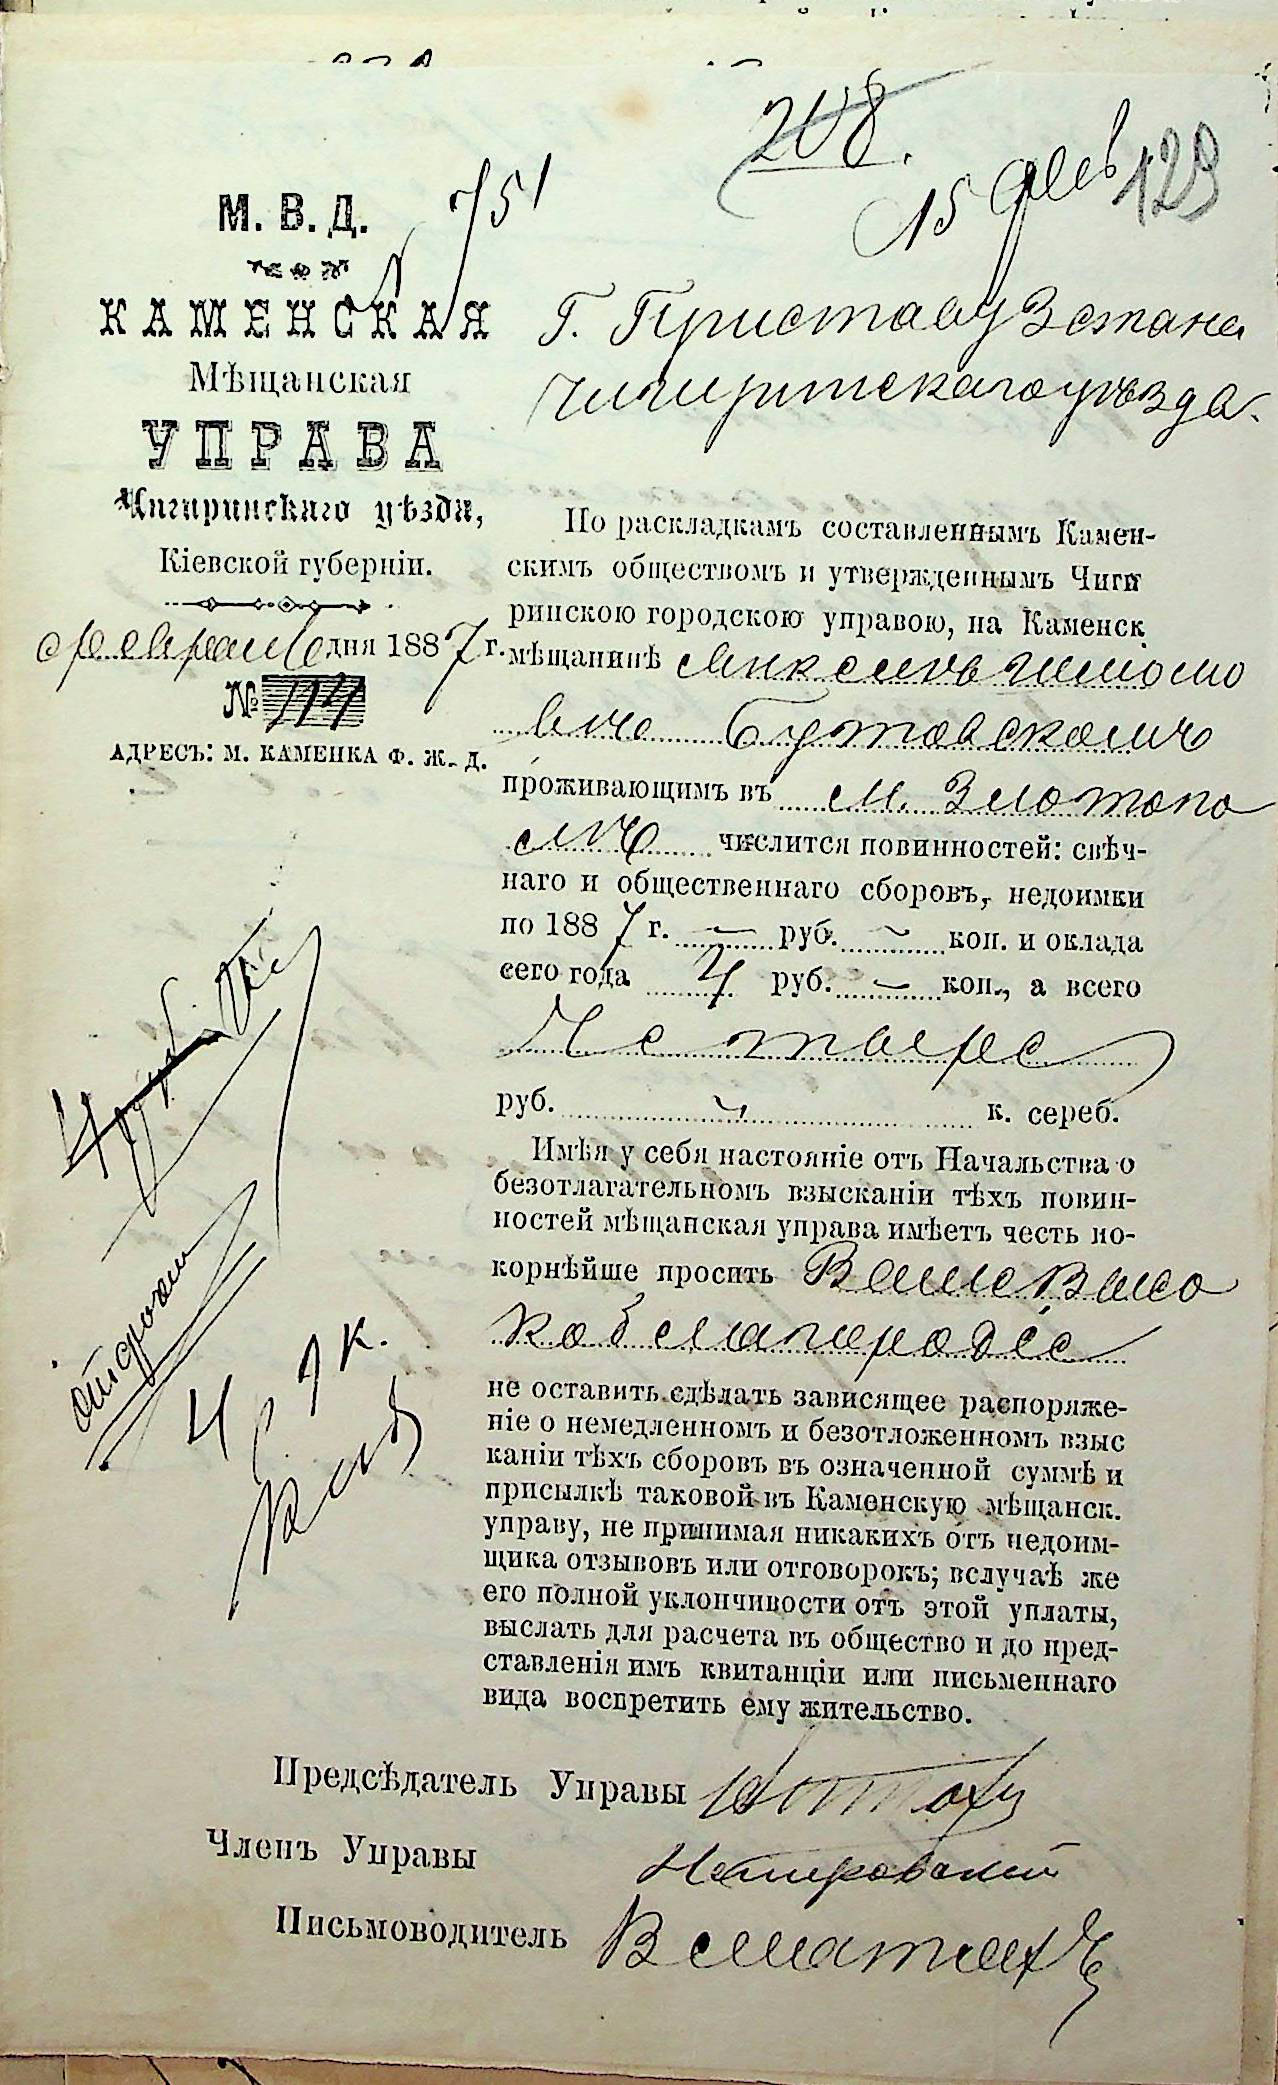 208.
15 фев 129
№ 751
М. В. Д.
КАМЕНСКАЯ
Мѣщанская
УПРАВА
Чигиринскаго уѣзда,
Кіевской губерніи.
февраля дня 1887 г.
№ 114
АДРЕСЪ: М. КАМЕНКА Ф. Ж. Д.
Г. Приставу 3 стана
Чигиринскаго уѣзда.
По раскладкамъ составленнымъ Камен-
скимъ обществомъ и утвержденнымъ Чиги
ринскою городскою управою, на Каменск
мѣщанинѣ
вичѣ Бутовскомъ
проживающимъ въ м. Златопо
лѣ числится повинностей: свѣч-
наго и общественнаго сборовъ, недоимки
по 1887 г. — руб. — коп. и оклада
сего года 4 руб. — коп., а всего
Четыре
руб. — к. сереб.
Имѣя у себя настояніе отъ Начальства о
безотлагательномъ взысканіи тѣхъ повин-
ностей мѣщанская управа имѣетъ честь по-
корнѣйше просить Ваше Высо
коблагородіе
не оставить сдѣлать зависящее распоряже-
ніе о немедленномъ и безотложенномъ взыс
каніи тѣхъ сборовъ въ означенной суммѣ и
присылкѣ таковой въ Каменскую мѣщанск.
управу, не принимая никакихъ отъ недоим-
щика отзывовъ или отговорокъ; вслучаѣ же
его полной уклончивости отъ этой уплаты,
выслать для расчета въ общество и до пред-
ставленія имъ квитанціи или письменнаго
вида воспретить ему жительство.
4 руб.
4
Предсѣдатель Управы
Членъ Управы
Письмоводитель